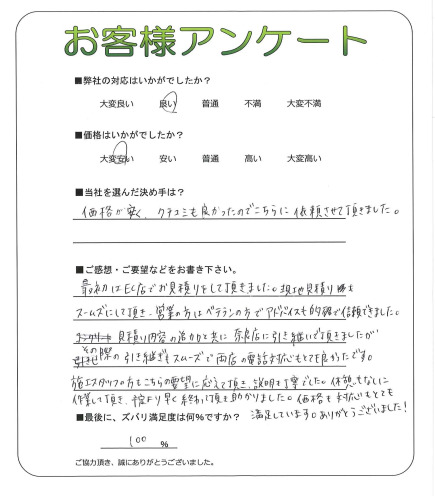 お客様アンケート
■弊社の対応はいかがでしたか？
大変良い 良い 普通 不満 大変不満
■価格はいかがでしたか？
大変安い 安い 普通 高い 大変高い
■当社を選んだ決め手は？
価格が安く、クチコミも良かったのでこちらに依頼させて頂きました。
■ご感想・ご要望などをお書き下さい。
最初はEC店でお見積りをして頂きました。現地見積りも
スムーズにして頂き、営業の方はベテランの方でアドバイスも的確で信頼できました。
見積り内容の追加と共に奈良店に引き継いで頂きましたが
その際の引き継ぎもスムーズで両店の電話対応もとても良かったです。
施工スタッフの方もこちらの要望に応えて頂き、説明も丁寧でした。休憩もなしに
作業して頂き、予定より早く終わって頂き助かりました。価格も対応もとても
■最後に、ズバリ満足度は何%ですか？ 満足しています。ありがとうございました！
100 %
ご協力頂き、誠にありがとうございました。